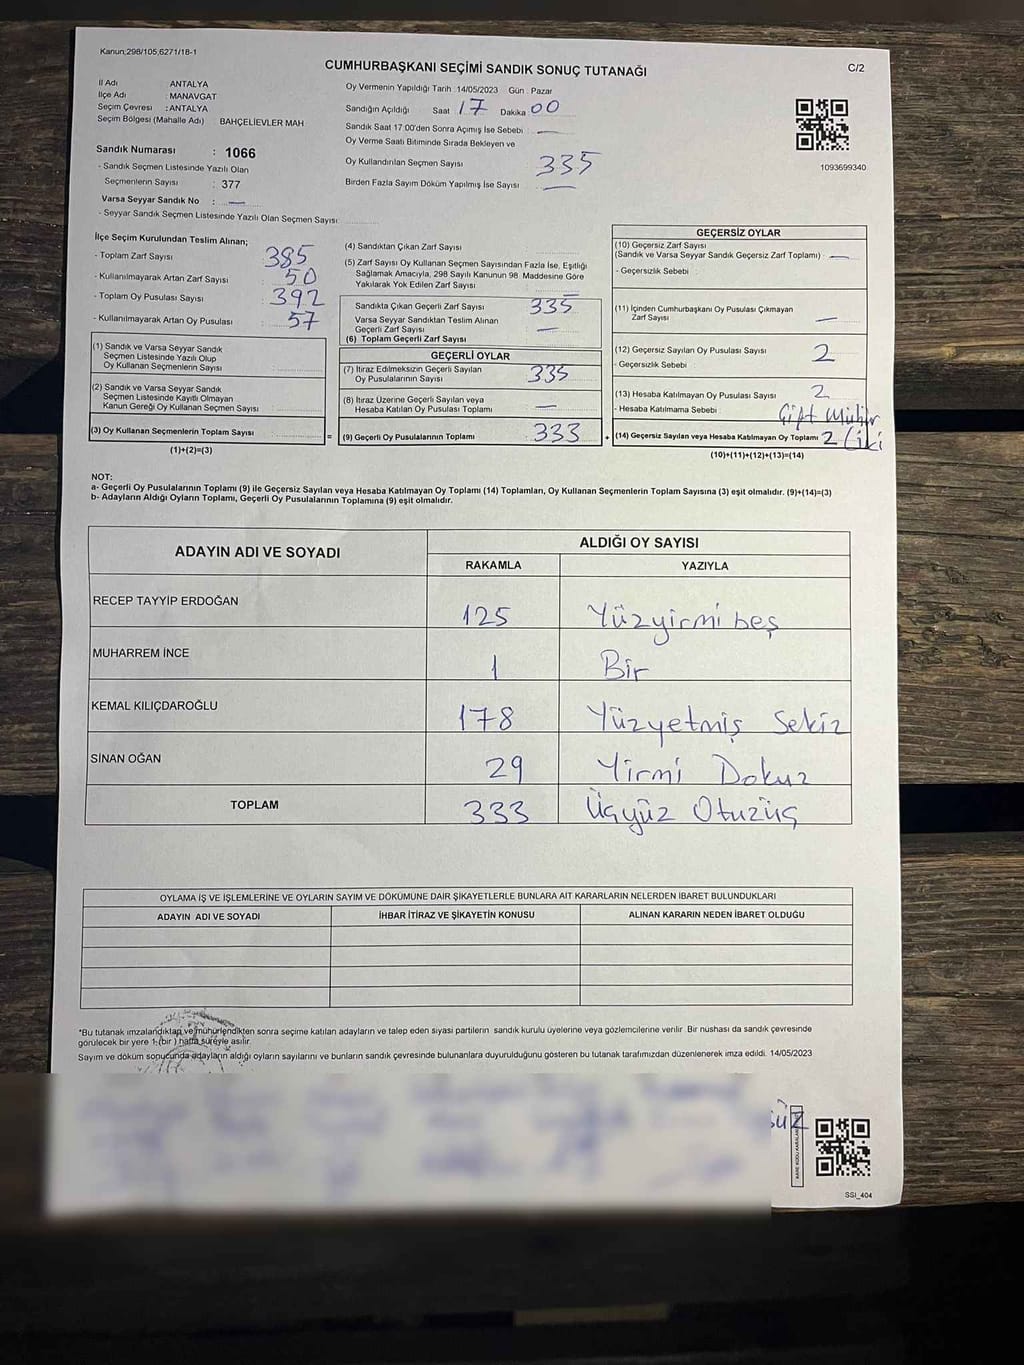 Kanun;298/105,6271/18-1
CUMHURBAŞKANI SEÇİMİ SANDIK SONUÇ TUTANAĞI
C/2
İl Adı : ANTALYA
İlçe Adı : MANAVGAT
Seçim Çevresi : ANTALYA
Seçim Bölgesi (Mahalle Adı) : BAHÇELİEVLER MAH
Sandık Numarası : 1066
- Sandık Seçmen Listesinde Yazılı Olan
Seçmenlerin Sayısı : 377
Varsa Seyyar Sandık No : —
- Seyyar Sandık Seçmen Listesinde Yazılı Olan Seçmen Sayısı:
Oy Vermenin Yapıldığı Tarih :14/05/2023 Gün : Pazar
Sandığın Açıldığı Saat 17 Dakika 00
Sandık Saat 17:00'den Sonra Açımış İse Sebebi : —
Oy Verme Saati Bitiminde Sırada Bekleyen ve
Oy Kullandırılan Seçmen Sayısı : 335
Birden Fazla Sayım Döküm Yapılmış İse Sayısı : —
1093699340
İlçe Seçim Kurulundan Teslim Alınan;
- Toplam Zarf Sayısı : 385
- Kullanılmayarak Artan Zarf Sayısı : 50
- Toplam Oy Pusulası Sayısı : 392
- Kullanılmayarak Artan Oy Pusulası : 57
(1) Sandık ve Varsa Seyyar Sandık
Seçmen Listesinde Yazılı Olup
Oy Kullanan Seçmenlerin Sayısı :
(2) Sandık ve Varsa Seyyar Sandık
Seçmen Listesinde Kayıtlı Olmayan
Kanun Gereği Oy Kullanan Seçmen Sayısı :
(3) Oy Kullanan Seçmenlerin Toplam Sayısı :
(1)+(2)=(3)
(4) Sandıktan Çıkan Zarf Sayısı
(5) Zarf Sayısı Oy Kullanan Seçmen Sayısından Fazla İse, Eşitliği
Sağlamak Amacıyla, 298 Sayılı Kanunun 98. Maddesine Göre
Yakılarak Yok Edilen Zarf Sayısı :
Sandıkta Çıkan Geçerli Zarf Sayısı : 335
Varsa Seyyar Sandıktan Teslim Alınan
Geçerli Zarf Sayısı : —
(6) Toplam Geçerli Zarf Sayısı
GEÇERLİ OYLAR
(7) İtiraz Edilmeksizin Geçerli Sayılan
Oy Pusulalarının Sayısı : 335
(8) İtiraz Üzerine Geçerli Sayılan veya
Hesaba Katılan Oy Pusulası Toplamı : —
= (9) Geçerli Oy Pusulalarının Toplamı : 333
GEÇERSİZ OYLAR
(10) Geçersiz Zarf Sayısı
(Sandık ve Varsa Seyyar Sandık Geçersiz Zarf Toplamı) : —
- Geçersizlik Sebebi :
(11) İçinden Cumhurbaşkanı Oy Pusulası Çıkmayan
Zarf Sayısı : —
(12) Geçersiz Sayılan Oy Pusulası Sayısı : 2
- Geçersizlik Sebebi :
(13) Hesaba Katılmayan Oy Pusulası Sayısı : 2
- Hesaba Katılmama Sebebi : Çift Mühür
+ (14) Geçersiz Sayılan veya Hesaba Katılmayan Oy Toplamı 2 (iki
(10)+(11)+(12)+(13)=(14)
NOT:
a- Geçerli Oy Pusulalarının Toplamı (9) ile Geçersiz Sayılan veya Hesaba Katılmayan Oy Toplamı (14) Toplamları, Oy Kullanan Seçmenlerin Toplam Sayısına (3) eşit olmalıdır. (9)+(14)=(3)
b- Adayların Aldığı Oyların Toplamı, Geçerli Oy Pusulalarının Toplamına (9) eşit olmalıdır.
ADAYIN ADI VE SOYADI
ALDIĞI OY SAYISI
RAKAMLA YAZIYLA
RECEP TAYYİP ERDOĞAN 125 Yüzyirmi beş
MUHARREM İNCE 1 Bir
KEMAL KILIÇDAROĞLU 178 Yüzyetmiş Sekiz
SİNAN OĞAN 29 Yirmi Dokuz
TOPLAM 333 Üçyüz Otuzüç
OYLAMA İŞ VE İŞLEMLERİNE VE OYLARIN SAYIM VE DÖKÜMÜNE DAİR ŞİKAYETLERLE BUNLARA AİT KARARLARIN NELERDEN İBARET BULUNDUKLARI
ADAYIN ADI VE SOYADI İHBAR İTİRAZ VE ŞİKAYETİN KONUSU ALINAN KARARIN NEDEN İBARET OLDUĞU
*Bu tutanak imzalandıktan ve mühürlendikten sonra seçime katılan adayların ve talep eden siyasi partilerin sandık kurulu üyelerine veya gözlemcilerine verilir. Bir nüshası da sandık çevresinde
görülecek bir yere 1 (bir ) hafta süreyle asılır.
Sayım ve döküm sonucunda adayların aldığı oyların sayılarını ve bunların sandık çevresinde bulunanlara duyurulduğunu gösteren bu tutanak tarafımızdan düzenlenerek imza edildi. 14/05/2023
SSİ_404